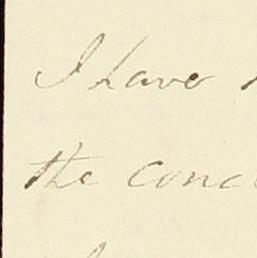 I have
the conc